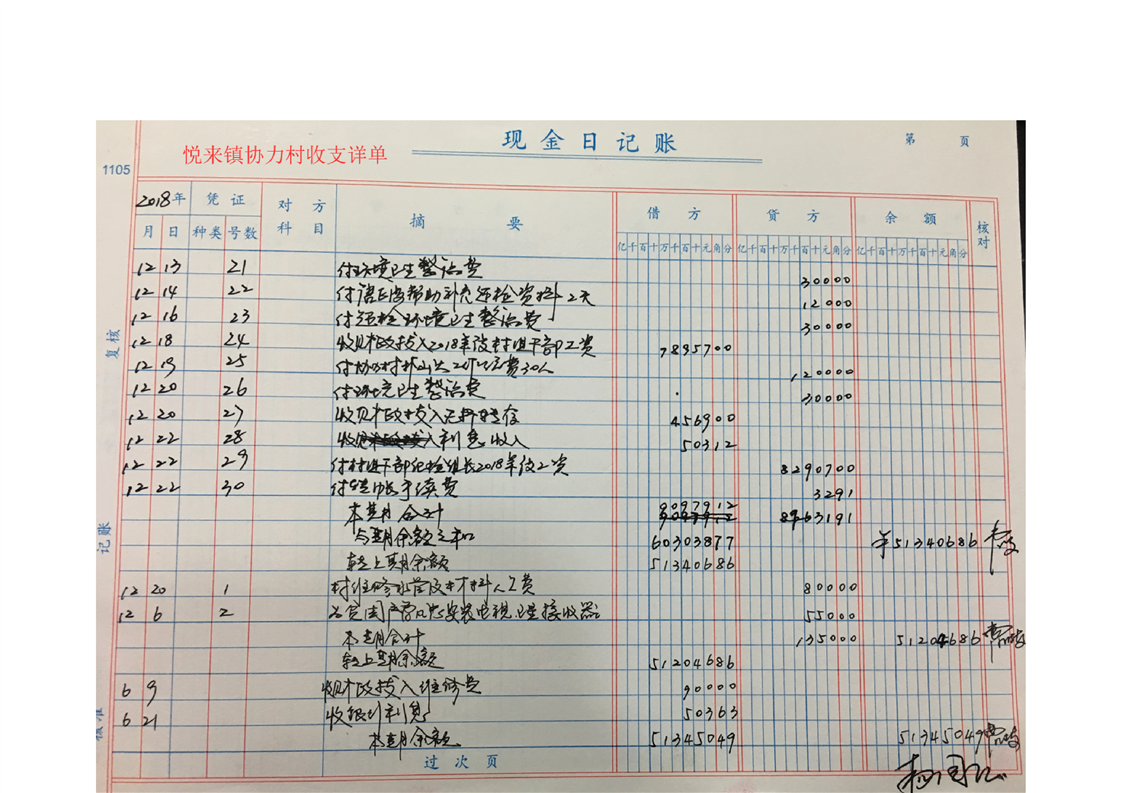 现金日记账
第 页
悦来镇协力村收支详单
1105
2018年 凭证 对方科目 摘要 借方 贷方 余额 核对
月 日 种类 号数 亿千百十万千百十元角分 亿千百十万千百十元角分 亿千百十万千百十元角分
12 13 21 付环境卫生整治费 30000
12 14 22 付 帮助补充迎检资料2天 12000
12 16 23 付迎检环境卫生整治费 30000
复核
12 18 24 收财政拨入2018年 村组干部工资 7895700
12 19 25 付协力村 费30人 120000
12 20 26 付环境卫生整治费 30000
12 20 27 收财政拨入 456900
12 22 28 收 利息收入 50312
12 22 29 付村组干部纪检组长2018年 工资 8290700
12 22 30 付转账手续费 3291
本期合计 9097912 8963191
记账
与期余额之和 60303877 羊51340686
转上期余额 51340686
12 20 1 村维修水管 材料人工费 80000
12 6 2 安装电视卫星接收器 55000
本期合计 135000 51204686
转上期余额 51204686
6 9 收财政拨入维修费 90000
核准
6 21 收银行利息 50363
本期余额 51345049 51345049
过次页